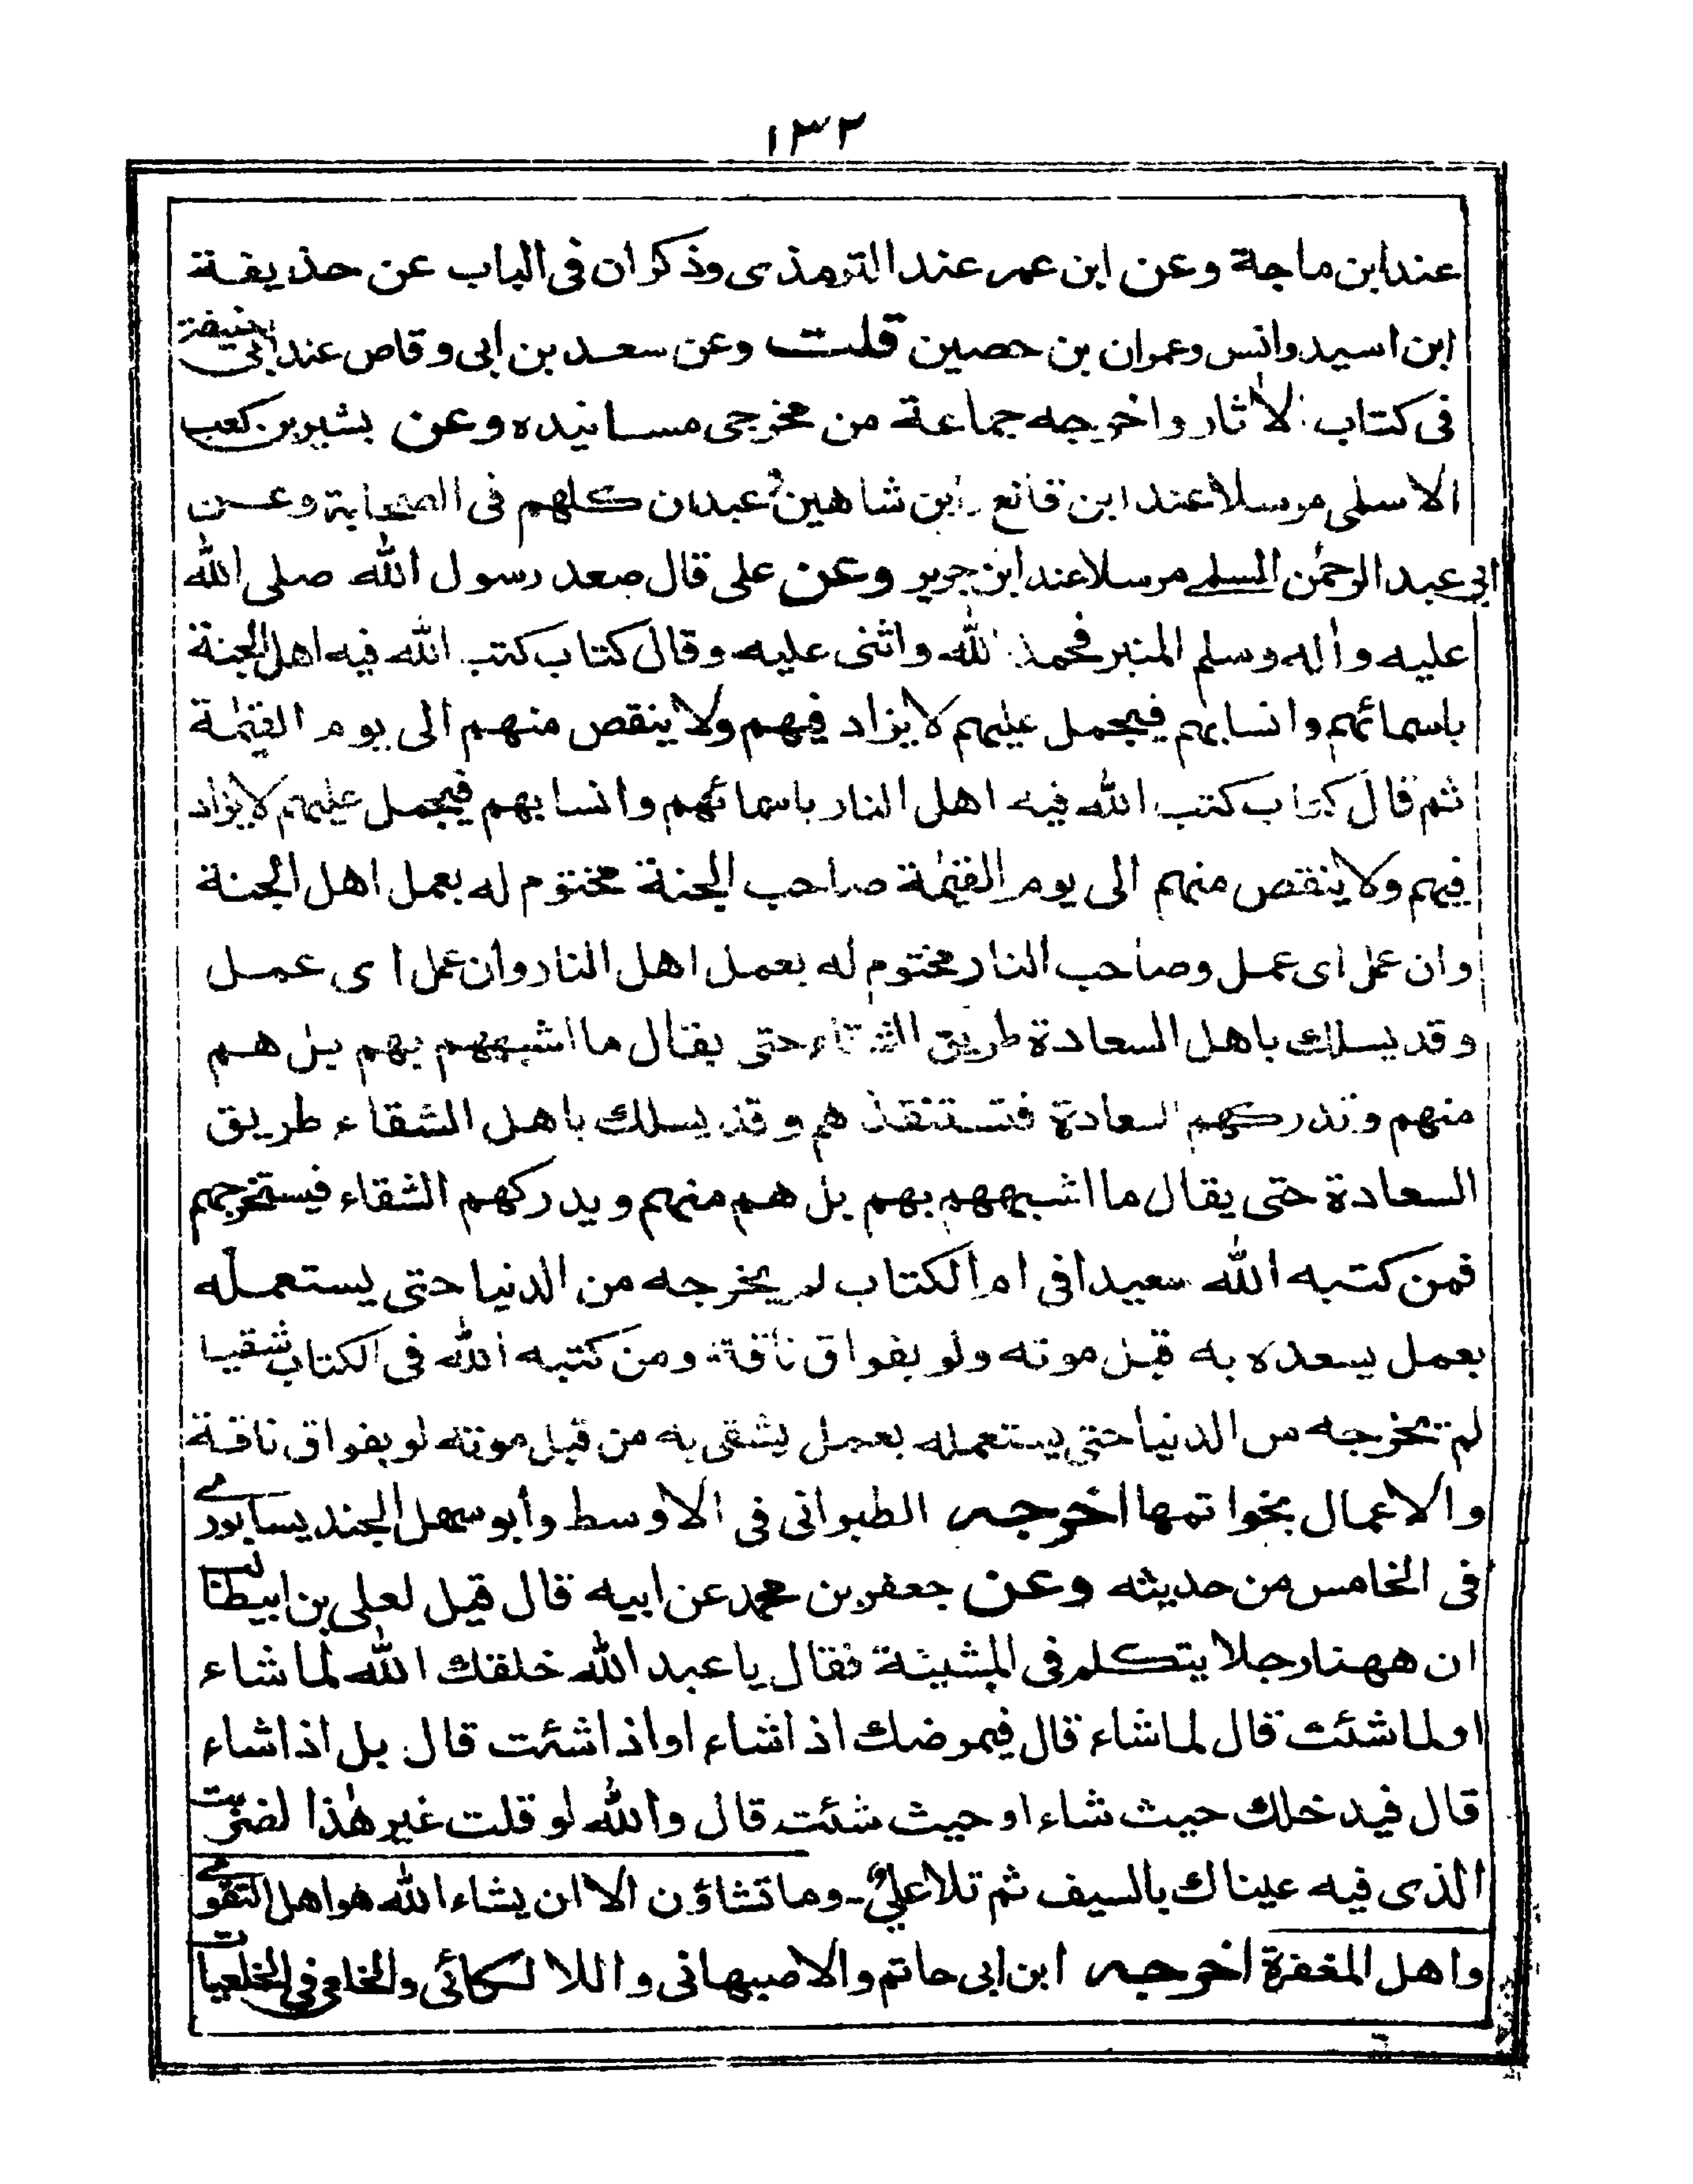 ١٣٢
عند ابن ماجة وعن ابن عمر عند الترمذى وذكر ان فى الباب عن حذيفة
ابن اسيد وانس وعمران بن حصين قلت وعن سعد بن ابى وقاص عند ابى حنيفة
فى كتاب الاٰثار واخرجه جماعة من مخرجى مسانيده وعن بشير بن كعب
الاسلمى مرسلا عند ابن قانع وابن شاهين وعبدان كلهم فى الصحابة وعن
ابى عبد الرحمٰن السلمے مرسلا عند ابن جرير وعن على قال صعد رسول الله صلى الله
عليه واٰله وسلم المنبر فحمد الله واثنى عليه وقال كتاب كتب الله فيه اهل الجنة
باسمائهم وانسابهم فيجمل عليهم لا يزاد فيهم ولا ينقص منهم الى يوم القيٰمة
ثم قال كتاب كتب الله فيه اهل النار باسمائهم وانسابهم فيجمل عليهم لا يزاد
فيهم ولا ينقص منهم الى يوم القيٰمة صاحب الجنة مختوم له بعمل اهل الجنة
وان عمل اى عمل وصاحب النار مختوم له بعمل اهل النار وان عمل اى عمل
وقد يسلك باهل السعادة طريق الشقاء حتى يقال ما اشبههم بهم بل هم
منهم وتدركهم السعادة فتستنقذهم وقد يسلك باهل الشقاء طريق
السعادة حتى يقال ما اشبههم بهم بل هم منهم ويدركهم الشقاء فيستخرجهم
فمن كتبه الله سعيدا فى ام الكتاب لم يخرجه من الدنيا حتى يستعمله
بعمل يسعده به قبل موته ولو بفواق ناقة ومن كتبه الله فى الكتاب شقيا
لم يخرجه من الدنيا حتى يستعمله بعمل يشقى به من قبل موته لو بفواق ناقة
والاعمال بخواتمها اخرجه الطبرانى فى الاوسط وأبو سهل الجنديسابورے
فى الخامس من حديثه وعن جعفر بن محمد عن ابيه قال قيل لعلى بن ابيطالب
ان ههنا رجلا يتكلم فى المشيئة فقال يا عبد الله خلقك الله لما شاء
او لما شئت قال لما شاء قال فيمرضك اذا شاء او اذا شئت قال بل اذا شاء
قال فيدخلك حيث شاء او حيث شئت قال والله لو قلت غير هٰذا لضربت
الذى فيه عيناك بالسيف ثم تلا على۔ وما تشاؤن الا ان يشاء الله هو اهل التقوے
واهل المغفرة اخرجه ابن ابى حاتم والاصبهانى واللالكائى والخلعى فى الخلعيات